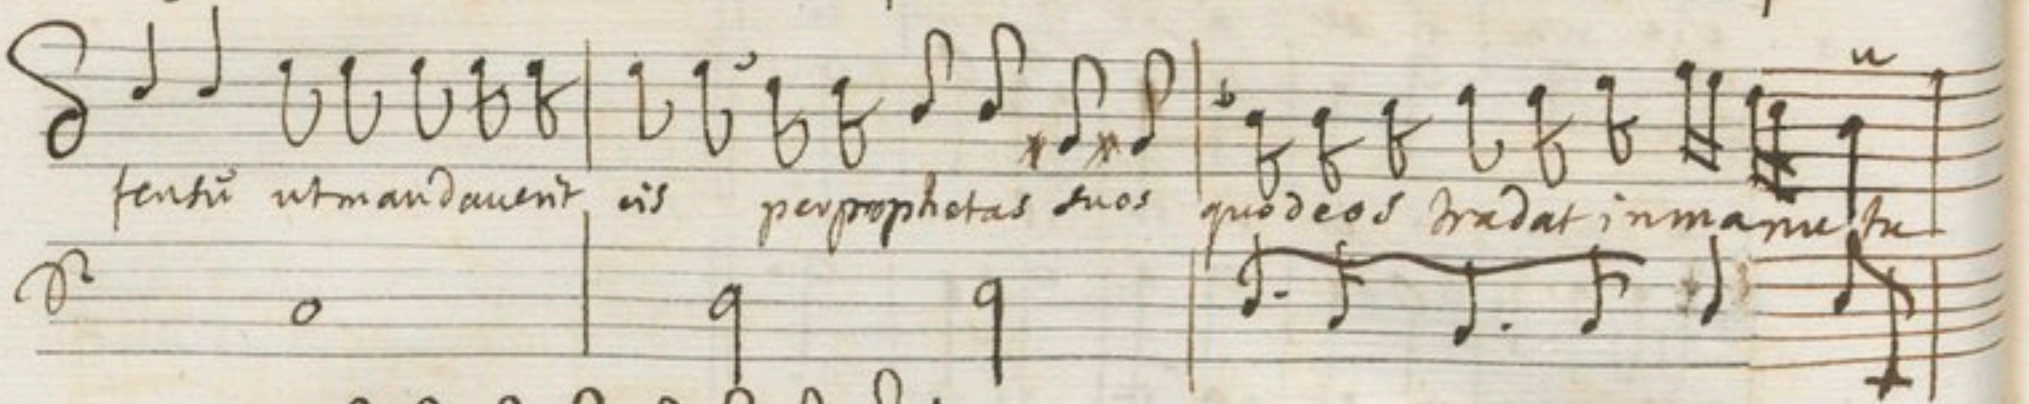 sensũ ut mandaverit eis per prophetas suos quod eos tradat in manu tu